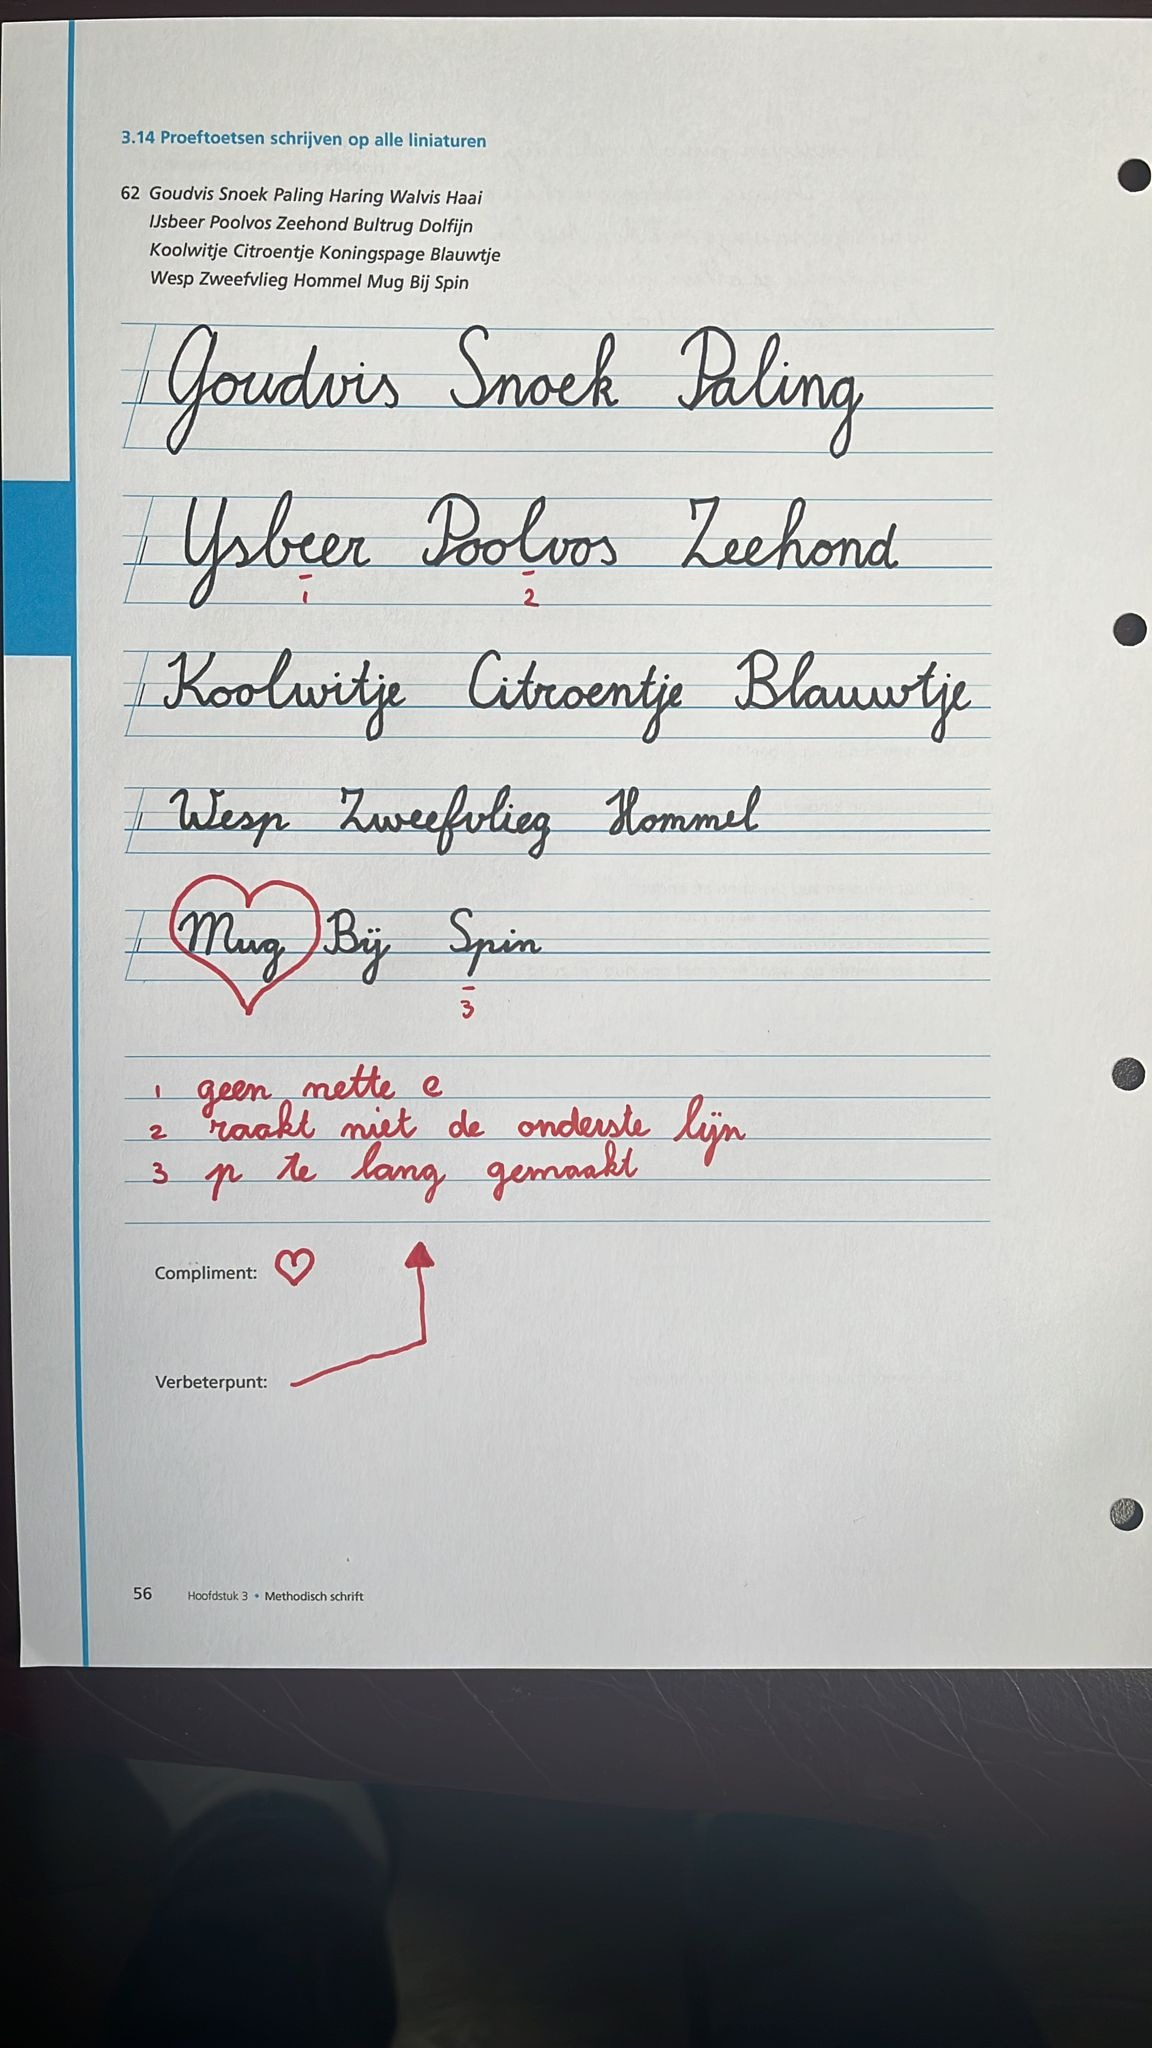 3.14 Proeftoetsen schrijven op alle liniaturen
62 Goudvis Snoek Paling Haring Walvis Haai
IJsbeer Poolvos Zeehond Bultrug Dolfijn
Koolwitje Citroentje Koningspage Blauwtje
Wesp Zweefvlieg Hommel Mug Bij Spin
Goudvis Snoek Paling
IJsbeer Poolvos Zeehond
1 2
Koolwitje Citroentje Blauwtje
Wesp Zweefvlieg Hommel
Mug Bij Spin
3
1 geen nette e
2 raakt niet de onderste lijn
3 p te lang gemaakt
Compliment:
Verbeterpunt:
56 Hoofdstuk 3 • Methodisch schrift